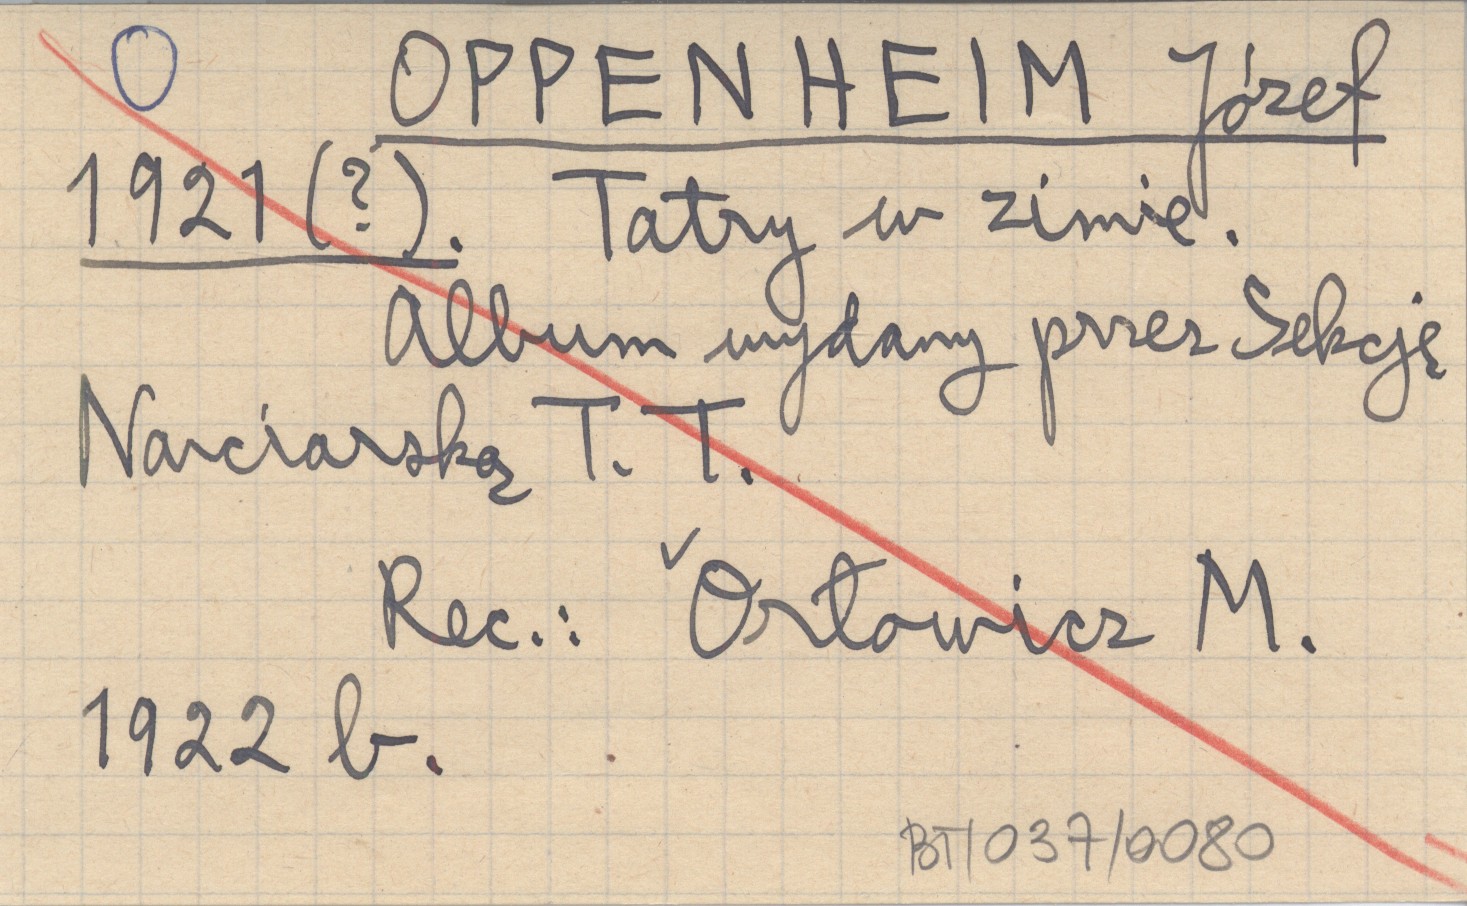 O OPPENHEIM Józef
1921 (?). Tatry w zimie.
Album wydany przez Sekcję
Narciarską T. T.
Rec.: ˇOrłowicz M.
1922 b.
BT/037/0080